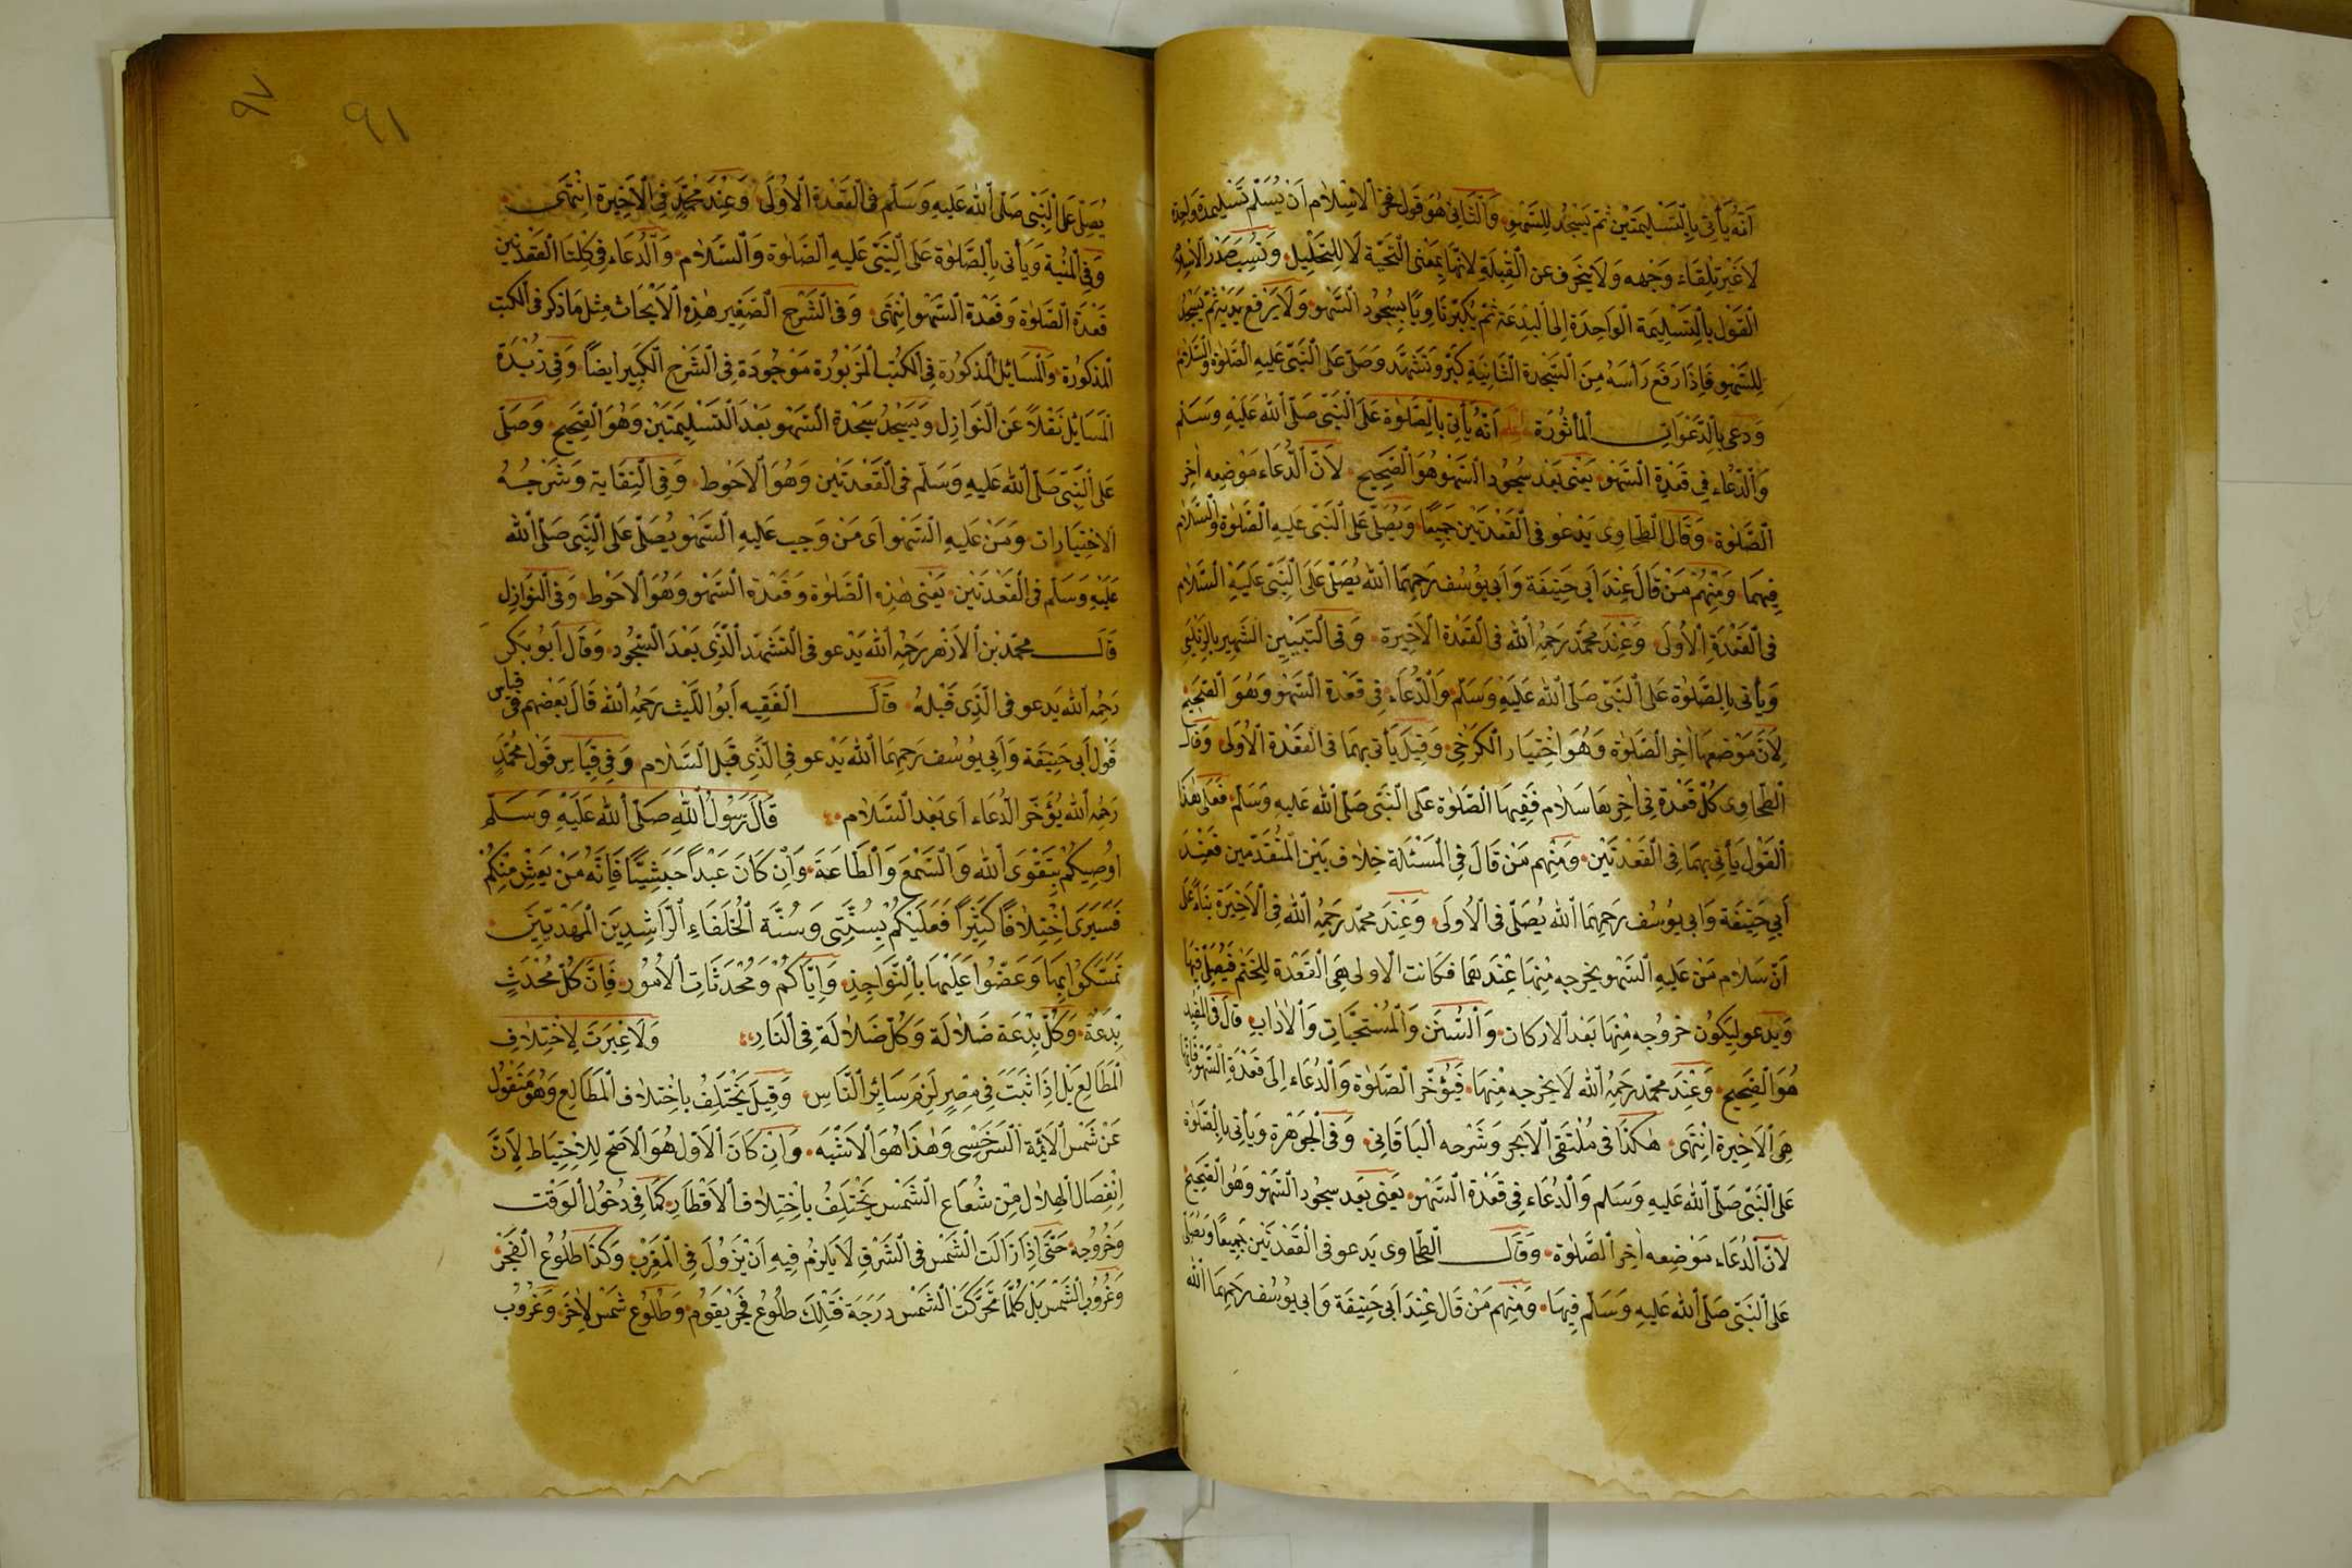 اَنَّهُ يَأْتِى بِالتَّسْلِيمَتَيْنِ ثُمَّ يَسْجُدُ لِلسَّهْوِ وَالثَّانِى هُوَ قَوْلُ فَخْرِ الْاِسْلَامِ اَنْ يُسَلِّمَ تَسْلِيمَةً وَاحِدَةً
لَا غَيْرَ تِلْقَاءَ وَجْهِه وَلَا يَنْحَرِفُ عَنِ الْقِبْلَةِ لِاَنَّهَا بِمَعْنَى التَّحِيَّةِ لَا لِلتَّحْلِيلِ وَنَسَبَ صَدْرُ الْاِسْلَامِ
الْقَوْلَ بِالتَّسْلِيمَةِ الْوَاحِدَةِ اِلَى الْبِدْعَةِ ثُمَّ يُكَبِّرُ نَاوِيًا بِسُجُودِ السَّهْوِ وَلَا يَرْفَعُ يَدَيْهِ ثُمَّ يَسْجُدُ
لِلسَّهْوِ فَاِذَا رَفَعَ رَأْسَهُ مِنَ السَّجْدَةِ الثَّانِيَةِ كَبَّرَ وَتَشَهَّدَ وَصَلَّى عَلَى النَّبِىِّ عَلَيْهِ الصَّلٰوةُ وَالسَّلَامُ
وَدَعَى بِالدَّعَوَاتِ الْمَأْثُورَةِ اَنَّهُ يَأْتِى بِالصَّلٰوةِ عَلَى النَّبِىِّ صَلَّى اللهُ عَلَيْهِ وَسَلَّمَ
وَالدُّعَاءِ فِى قَعْدَةِ السَّهْوِ يَعْنِى بَعْدَ سُجُودِ السَّهْوِ هُوَ الصَّحِيحُ لِاَنَّ الدُّعَاءَ مَوْضِعُه اٰخِرُ
الصَّلٰوةِ وَقَالَ الطَّحَاوِى يَدْعُو فِى الْقَعْدَتَيْنِ جَمِيعًا وَيُصَلِّى عَلَى النَّبِىِّ عَلَيْهِ الصَّلٰوةُ وَالسَّلَامُ
فِيهِمَا وَمِنْهُمْ مَنْ قَالَ عِنْدَ اَبِى حَنِيفَةَ وَاَبِى يُوسُفَ رَحِمَهُمَا اللهُ يُصَلِّى عَلَى النَّبِىِّ عَلَيْهِ السَّلَامُ
فِى الْقَعْدَةِ الْاُولٰى وَعِنْدَ مُحَمَّدٍ رَحِمَهُ اللهُ فِى الْقَعْدَةِ الْاَخِيرَةِ وَفِى التَّبْيِينِ الشَّهِيرِ بِالزَّيْلَعِى
وَيَأْتِى بِالصَّلٰوةِ عَلَى النَّبِىِّ صَلَّى اللهُ عَلَيْهِ وَسَلَّمَ وَالدُّعَاءِ فِى قَعْدَةِ السَّهْوِ وَهُوَ الصَّحِيحُ
لِاَنَّ مَوْضِعَهَا اٰخِرُ الصَّلٰوةِ وَهُوَ اخْتِيَارُ الْكَرْخِى وَقِيلَ يَأْتِى بِهِمَا فِى الْقَعْدَةِ الْاُولٰى وَقَالَ
الطَّحَاوِى كُلُّ قَعْدَةٍ فِى اٰخِرِهَا سَلَامٌ فَفِيهَا الصَّلٰوةُ عَلَى النَّبِىِّ صَلَّى اللهُ عَلَيْهِ وَسَلَّمَ فَعَلٰى هٰذَا
الْقَوْلِ يَأْتِى بِهِمَا فِى الْقَعْدَتَيْنِ وَمِنْهُمْ مَنْ قَالَ فِى الْمَسْئَلَةِ خِلَافٌ بَيْنَ الْمُتَقَدِّمِينَ فَعِنْدَ
اَبِى حَنِيفَةَ وَاَبِى يُوسُفَ رَحِمَهُمَا اللهُ يُصَلِّى فِى الْاُولٰى وَعِنْدَ مُحَمَّدٍ رَحِمَهُ اللهُ فِى الْاَخِيرَةِ بِنَاءً عَلٰى
اَنَّ سَلَامَ مَنْ عَلَيْهِ السَّهْوُ يُخْرِجُهُ مِنْهَا عِنْدَهُمَا فَكَانَتِ الْاُولٰى هِىَ الْقَعْدَةَ لِلْخَتْمِ فَيُصَلِّى فِيهَا
وَيَدْعُو لِيَكُونَ خُرُوجُهُ مِنْهَا بَعْدَ الْاَرْكَانِ وَالسُّنَنِ وَالْمُسْتَحَبَّاتِ وَالْاٰدَابِ قَالَ فِى الْمُفِيدِ
هُوَ الصَّحِيحُ وَعِنْدَ مُحَمَّدٍ رَحِمَهُ اللهُ لَا يُخْرِجُهُ مِنْهَا فَيُؤَخِّرُ الصَّلٰوةَ وَالدُّعَاءَ اِلٰى قَعْدَةِ السَّهْوِ فَاِنَّهَا
هِىَ الْاَخِيرَةُ انْتَهٰى هٰكَذَا فِى مُلْتَقَى الْاَبْحُرِ وَشَرْحِهِ الْبَاقَانِى وَفِى الْجَوْهَرَةِ وَيَأْتِى بِالصَّلٰوةِ
عَلَى النَّبِىِّ صَلَّى اللهُ عَلَيْهِ وَسَلَّمَ وَالدُّعَاءِ فِى قَعْدَةِ السَّهْوِ يَعْنِى بَعْدَ سُجُودِ السَّهْوِ وَهُوَ الصَّحِيحُ
لِاَنَّ الدُّعَاءَ مَوْضِعُهُ اٰخِرُ الصَّلٰوةِ وَقَالَ الطَّحَاوِى يَدْعُو فِى الْقَعْدَتَيْنِ جَمِيعًا وَيُصَلِّى
عَلَى النَّبِىِّ صَلَّى اللهُ عَلَيْهِ وَسَلَّمَ فِيهَا وَمِنْهُمْ مَنْ قَالَ عِنْدَ اَبِى حَنِيفَةَ وَاَبِى يُوسُفَ رَحِمَهُمَا اللهُ
٩٧
٩١
يُصَلِّى عَلَى النَّبِىِّ صَلَّى اللهُ عَلَيْهِ وَسَلَّمَ فِى الْقَعْدَةِ الْاُولٰى وَعِنْدَ مُحَمَّدٍ فِى الْاَخِيرَةِ انْتَهٰى
وَفِى الْمُنْيَةِ وَيَأْتِى بِالصَّلٰوةِ عَلَى النَّبِىِّ عَلَيْهِ الصَّلٰوةُ وَالسَّلَامُ وَالدُّعَاءِ فِى كِلْتَا الْقَعْدَتَيْنِ
قَعْدَةِ الصَّلٰوةِ وَقَعْدَةِ السَّهْوِ انْتَهٰى وَفِى الشَّرْحِ الصَّغِيرِ هٰذِهِ الْاَبْحَاثُ مِثْلُ مَا ذُكِرَ فِى الْكُتُبِ
الْمَذْكُورَةِ وَالْمَسَائِلُ الْمَذْكُورَةُ فِى الْكُتُبِ الْمَزْبُورَةِ مَوْجُودَةٌ فِى الشَّرْحِ الْكَبِيرِ اَيْضًا وَفِى زُبْدَةِ
الْمَسَائِلِ نَقْلًا عَنِ النَّوَازِلِ وَيَسْجُدُ سَجْدَةَ السَّهْوِ بَعْدَ التَّسْلِيمَتَيْنِ وَهُوَ الصَّحِيحُ وَصَلَّى
عَلَى النَّبِىِّ صَلَّى اللهُ عَلَيْهِ وَسَلَّمَ فِى الْقَعْدَتَيْنِ وَهُوَ الْاَحْوَطُ وَفِى النِّقَايَةِ وَشَرْحِهِ
الِاخْتِيَارَاتِ وَمَنْ عَلَيْهِ السَّهْوُ اَىْ مَنْ وَجَبَ عَلَيْهِ السَّهْوُ يُصَلِّى عَلَى النَّبِىِّ صَلَّى اللهُ
عَلَيْهِ وَسَلَّمَ فِى الْقَعْدَتَيْنِ يَعْنِى هٰذِهِ الصَّلٰوةِ وَقَعْدَةِ السَّهْوِ وَهُوَ الْاَحْوَطُ وَفِى النَّوَازِلِ
قَالَ مُحَمَّدُ بْنُ الْاَزْهَرِ رَحِمَهُ اللهُ يَدْعُو فِى التَّشَهُّدِ الَّذِى بَعْدَ السُّجُودِ وَقَالَ اَبُو بَكْرٍ
رَحِمَهُ اللهُ يَدْعُو فِى الَّذِى قَبْلَهُ قَالَ الْفَقِيهُ اَبُو اللَّيْثِ رَحِمَهُ اللهُ قَالَ بَعْضُهُمْ فِى قِيَاسِ
قَوْلِ اَبِى حَنِيفَةَ وَاَبِى يُوسُفَ رَحِمَهُمَا اللهُ يَدْعُو فِى الَّذِى قَبْلَ السَّلَامِ وَفِى قِيَاسِ قَوْلِ مُحَمَّدٍ
رَحِمَهُ اللهُ يُؤَخِّرُ الدُّعَاءَ اَىْ بَعْدَ السَّلَامِ قَالَ رَسُولُ اللهِ صَلَّى اللهُ عَلَيْهِ وَسَلَّمَ
اُوصِيكُمْ بِتَقْوَى اللهِ وَالسَّمْعِ وَالطَّاعَةِ وَاِنْ كَانَ عَبْدًا حَبَشِيًّا فَاِنَّهُ مَنْ يَعِشْ مِنْكُمْ
فَسَيَرٰى اخْتِلَافًا كَثِيرًا فَعَلَيْكُمْ بِسُنَّتِى وَسُنَّةِ الْخُلَفَاءِ الرَّاشِدِينَ الْمَهْدِيِّينَ
تَمَسَّكُوا بِهَا وَعَضُّوا عَلَيْهَا بِالنَّوَاجِذِ وَاِيَّاكُمْ وَمُحْدَثَاتِ الْاُمُورِ فَاِنَّ كُلَّ مُحْدَثٍ
بِدْعَةٌ وَكُلُّ بِدْعَةٍ ضَلَالَةٌ وَكُلُّ ضَلَالَةٍ فِى النَّارِ وَلَا عِبْرَةَ لِاخْتِلَافِ
الْمَطَالِعِ بَلْ اِذَا ثَبَتَ فِى مِصْرٍ لَزِمَ سَائِرَ النَّاسِ وَقِيلَ يَخْتَلِفُ بِاخْتِلَافِ الْمَطَالِعِ وَهُوَ مَنْقُولٌ
عَنْ شَمْسِ الْاَئِمَّةِ السَّرَخْسِى وَهٰذَا هُوَ الْاَشْبَهُ وَاِنْ كَانَ الْاَوَّلُ هُوَ الْاَصَحَّ لِلِاحْتِيَاطِ لِاَنَّ
انْفِصَالَ الْهِلَالِ مِنْ شُعَاعِ الشَّمْسِ يَخْتَلِفُ بِاخْتِلَافِ الْاَقْطَارِ كَمَا فِى دُخُولِ الْوَقْتِ
وَخُرُوجِهِ حَتّٰى اِذَا زَالَتِ الشَّمْسُ فِى الشَّرْقِ لَا يَلْزَمُ فِيهِ اَنْ يَزُولَ فِى الْمَغْرِبِ وَكَذَا طُلُوعُ الْفَجْرِ
وَغُرُوبُ الشَّمْسِ بَلْ كُلَّمَا تَحَرَّكَتِ الشَّمْسُ دَرَجَةً فَتِلْكَ طُلُوعُ فَجْرٍ لِقَوْمٍ وَطُلُوعُ شَمْسٍ لِاٰخَرَ وَغُرُوبُ